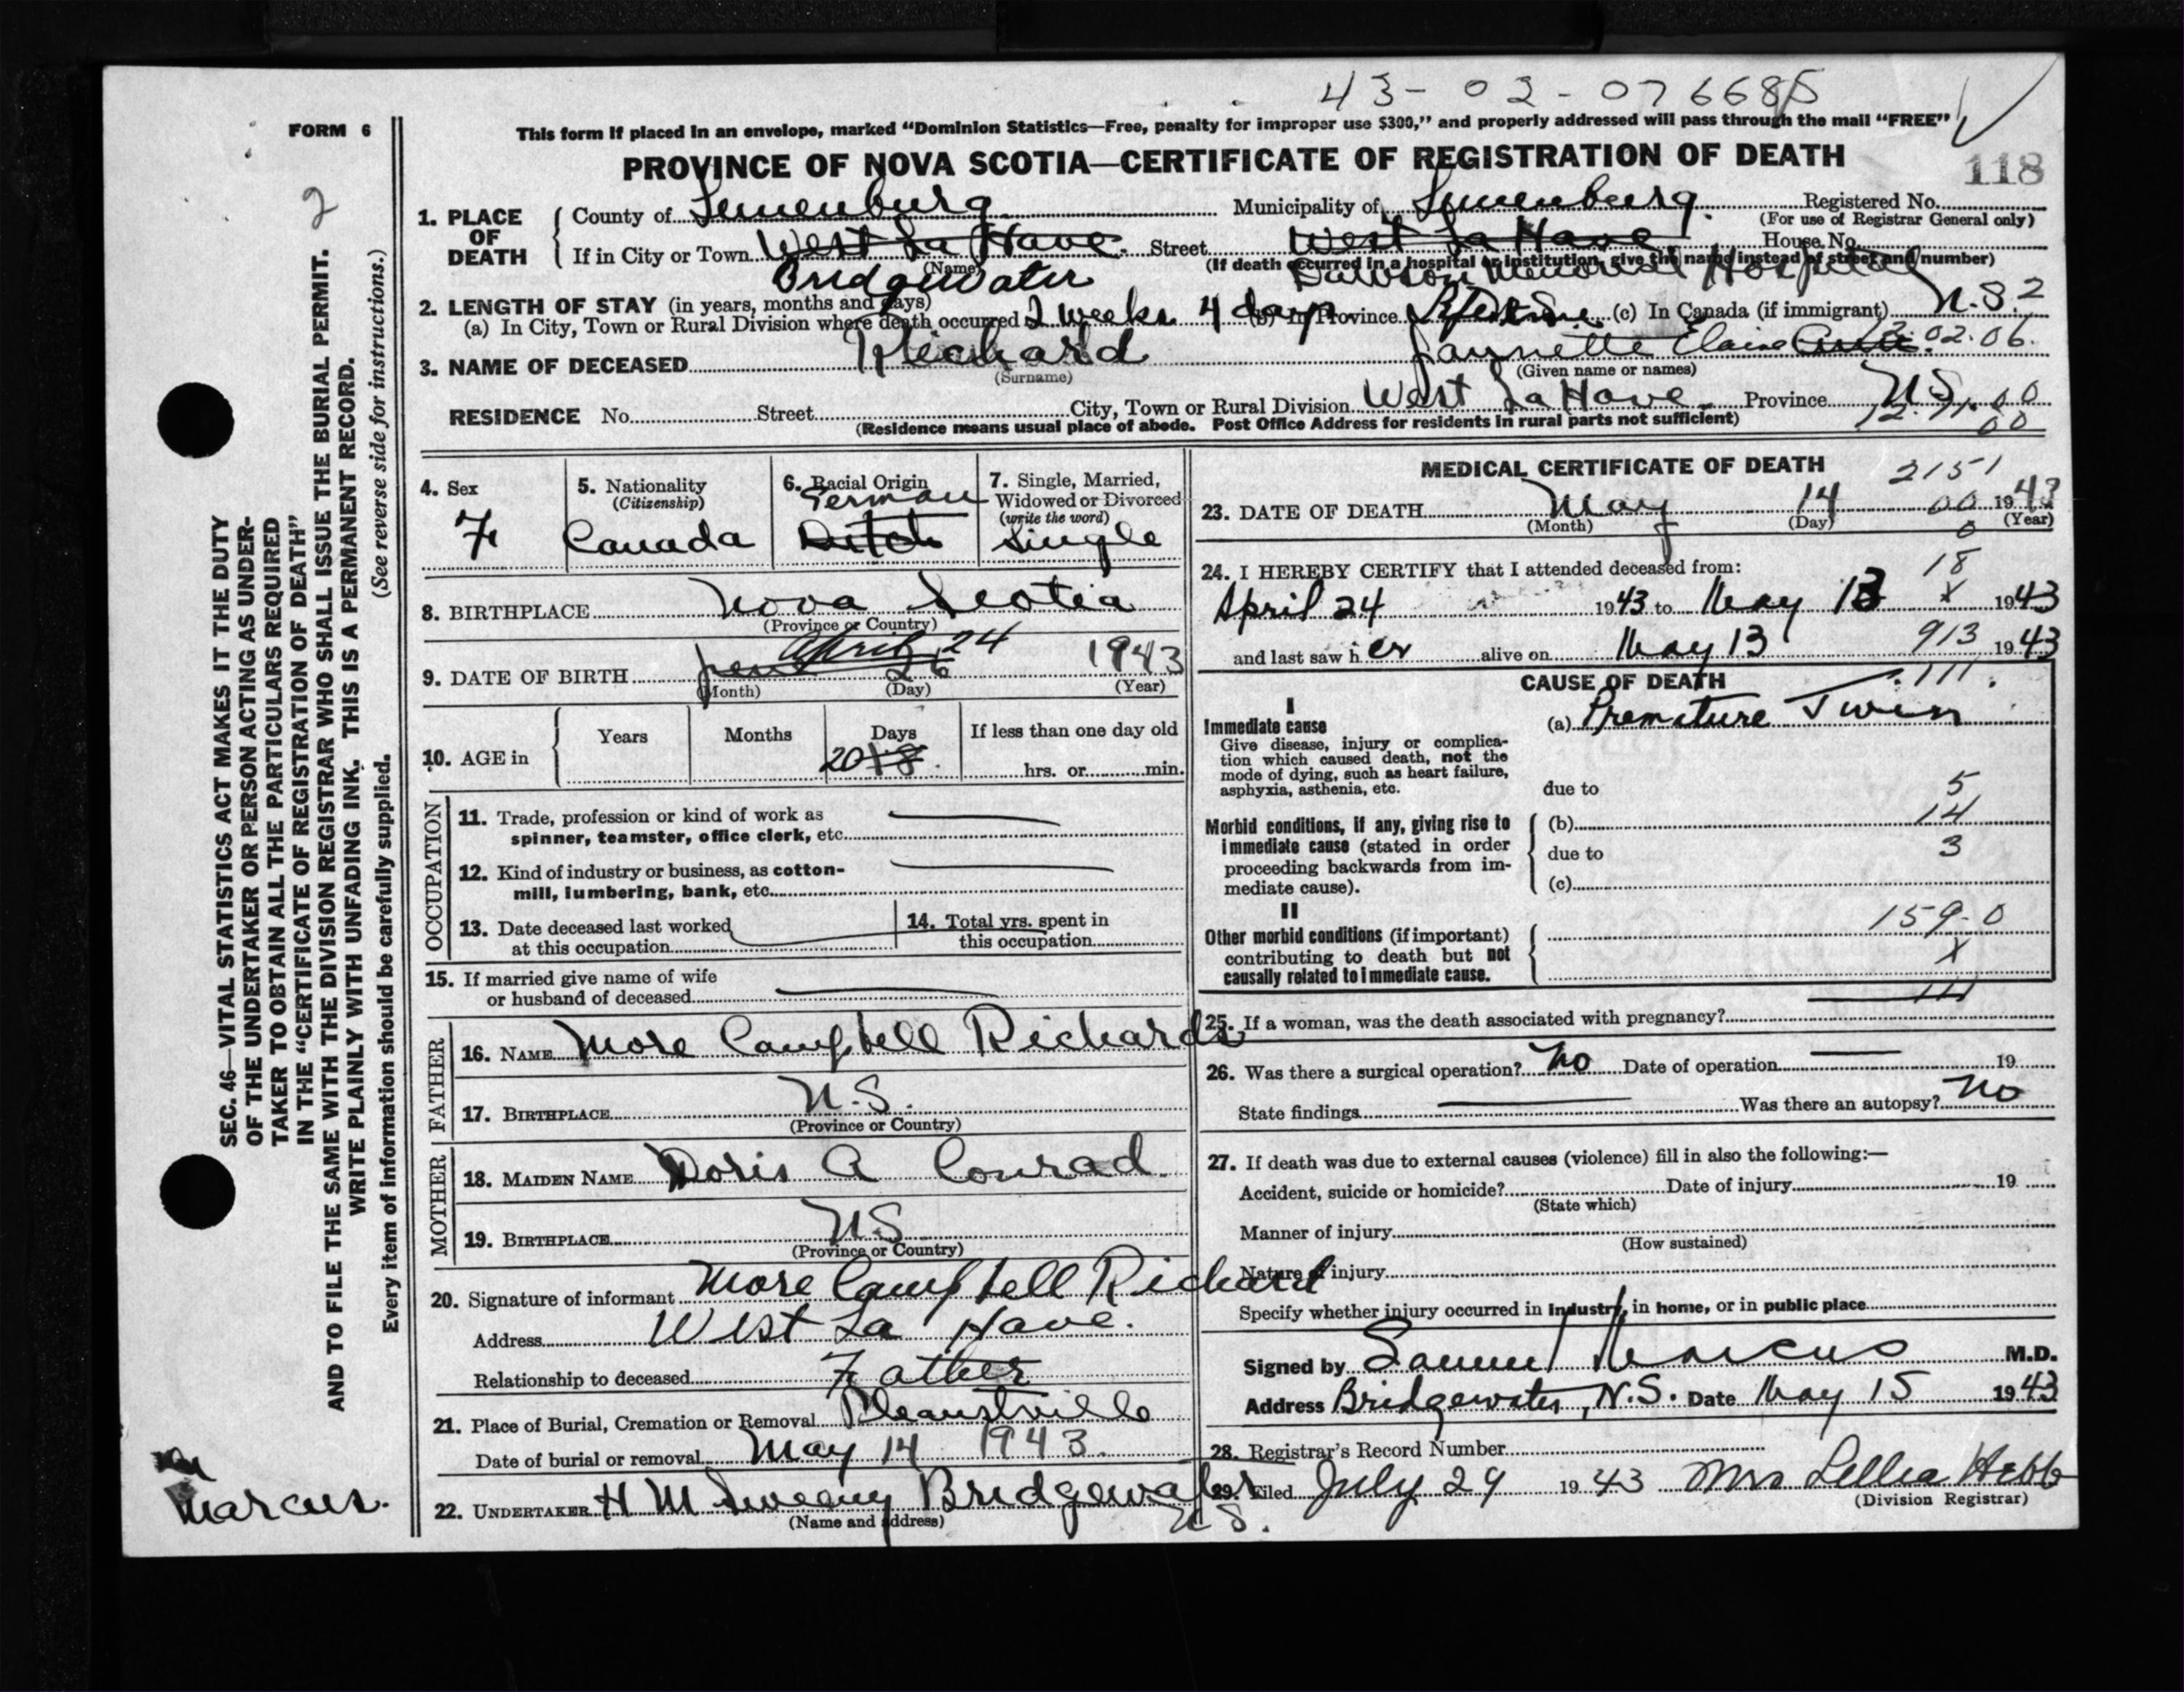 43-02-076685
FORM 6
This form if placed in an envelope, marked “Dominion Statistics—Free, penalty for improper use $300,” and properly addressed will pass through the mail “FREE”
PROVINCE OF NOVA SCOTIA—CERTIFICATE OF REGISTRATION OF DEATH
118
2
SEC. 46—VITAL STATISTICS ACT MAKES IT THE DUTY
OF THE UNDERTAKER OR PERSON ACTING AS UNDER-
TAKER TO OBTAIN ALL THE PARTICULARS REQUIRED
IN THE “CERTIFICATE OF REGISTRATION OF DEATH”
AND TO FILE THE SAME WITH THE DIVISION REGISTRAR WHO SHALL ISSUE THE BURIAL PERMIT.
WRITE PLAINLY WITH UNFADING INK. THIS IS A PERMANENT RECORD.
Every item of information should be carefully supplied. (See reverse side for instructions.)
Marcus.
1. PLACE OF DEATH
County of Lunenburg Municipality of Lunenburg. Registered No.
(For use of Registrar General only)
If in City or Town West La Have. Street West La Have House No.
(Name) (If death occurred in a hospital or institution, give the name instead of street and number)
Bridgewater Dawson Memorial Hospital
2. LENGTH OF STAY (in years, months and days)
(a) In City, Town or Rural Division where death occurred 2 weeks 4 days (b) In Province (c) In Canada (if immigrant) N.S. 2
02.06.
3. NAME OF DECEASED Richard Jannette Elaine
(Surname) (Given name or names)
RESIDENCE No. Street City, Town or Rural Division West La Have Province N.S.
(Residence means usual place of abode. Post Office Address for residents in rural parts not sufficient)
00
4. Sex
F
5. Nationality
(Citizenship)
Canada
6. Racial Origin
German
Dutch
7. Single, Married,
Widowed or Divorced
(write the word)
Single
8. BIRTHPLACE Nova Scotia
(Province or Country)
9. DATE OF BIRTH April 24 1943
26
(Month) (Day) (Year)
10. AGE in
Years Months Days If less than one day old
20 18 hrs. or min.
OCCUPATION
11. Trade, profession or kind of work as
spinner, teamster, office clerk, etc.
12. Kind of industry or business, as cotton-
mill, lumbering, bank, etc.
13. Date deceased last worked
at this occupation
14. Total yrs. spent in
this occupation
15. If married give name of wife
or husband of deceased
FATHER
16. NAME More Campbell Richards
17. BIRTHPLACE N.S.
(Province or Country)
MOTHER
18. MAIDEN NAME Doris A Conrad
19. BIRTHPLACE N.S
(Province or Country)
20. Signature of informant More Campbell Richard
Address West La Have.
Relationship to deceased Father
21. Place of Burial, Cremation or Removal
Date of burial or removal May 14 1943.
22. UNDERTAKER H M Sweeny Bridgewater
N S.
(Name and address)
MEDICAL CERTIFICATE OF DEATH
2151
23. DATE OF DEATH May 14 00 1943
(Month) (Day) (Year)
0
24. I HEREBY CERTIFY that I attended deceased from:
18
April 24 1943 to May 13 x 1943
and last saw her alive on May 13 913 1943
CAUSE OF DEATH
111.
I
Immediate cause
Give disease, injury or complica-
tion which caused death, not the
mode of dying, such as heart failure,
asphyxia, asthenia, etc.
(a) Premature Twin
due to 5
Morbid conditions, if any, giving rise to
immediate cause (stated in order
proceeding backwards from im-
mediate cause).
(b) 14
due to 3
(c)
II
Other morbid conditions (if important)
contributing to death but not
causally related to immediate cause.
159-0
X
111
25. If a woman, was the death associated with pregnancy?
26. Was there a surgical operation? No Date of operation 19
State findings Was there an autopsy? No
27. If death was due to external causes (violence) fill in also the following:—
Accident, suicide or homicide? Date of injury 19
(State which)
Manner of injury
(How sustained)
Nature of injury
Specify whether injury occurred in industry, in home, or in public place
Signed by Samuel Marcus M.D.
Address Bridgewater, N.S. Date May 15 1943
28. Registrar's Record Number
29. Filed July 29 1943 Mrs Lellia Hebb
(Division Registrar)